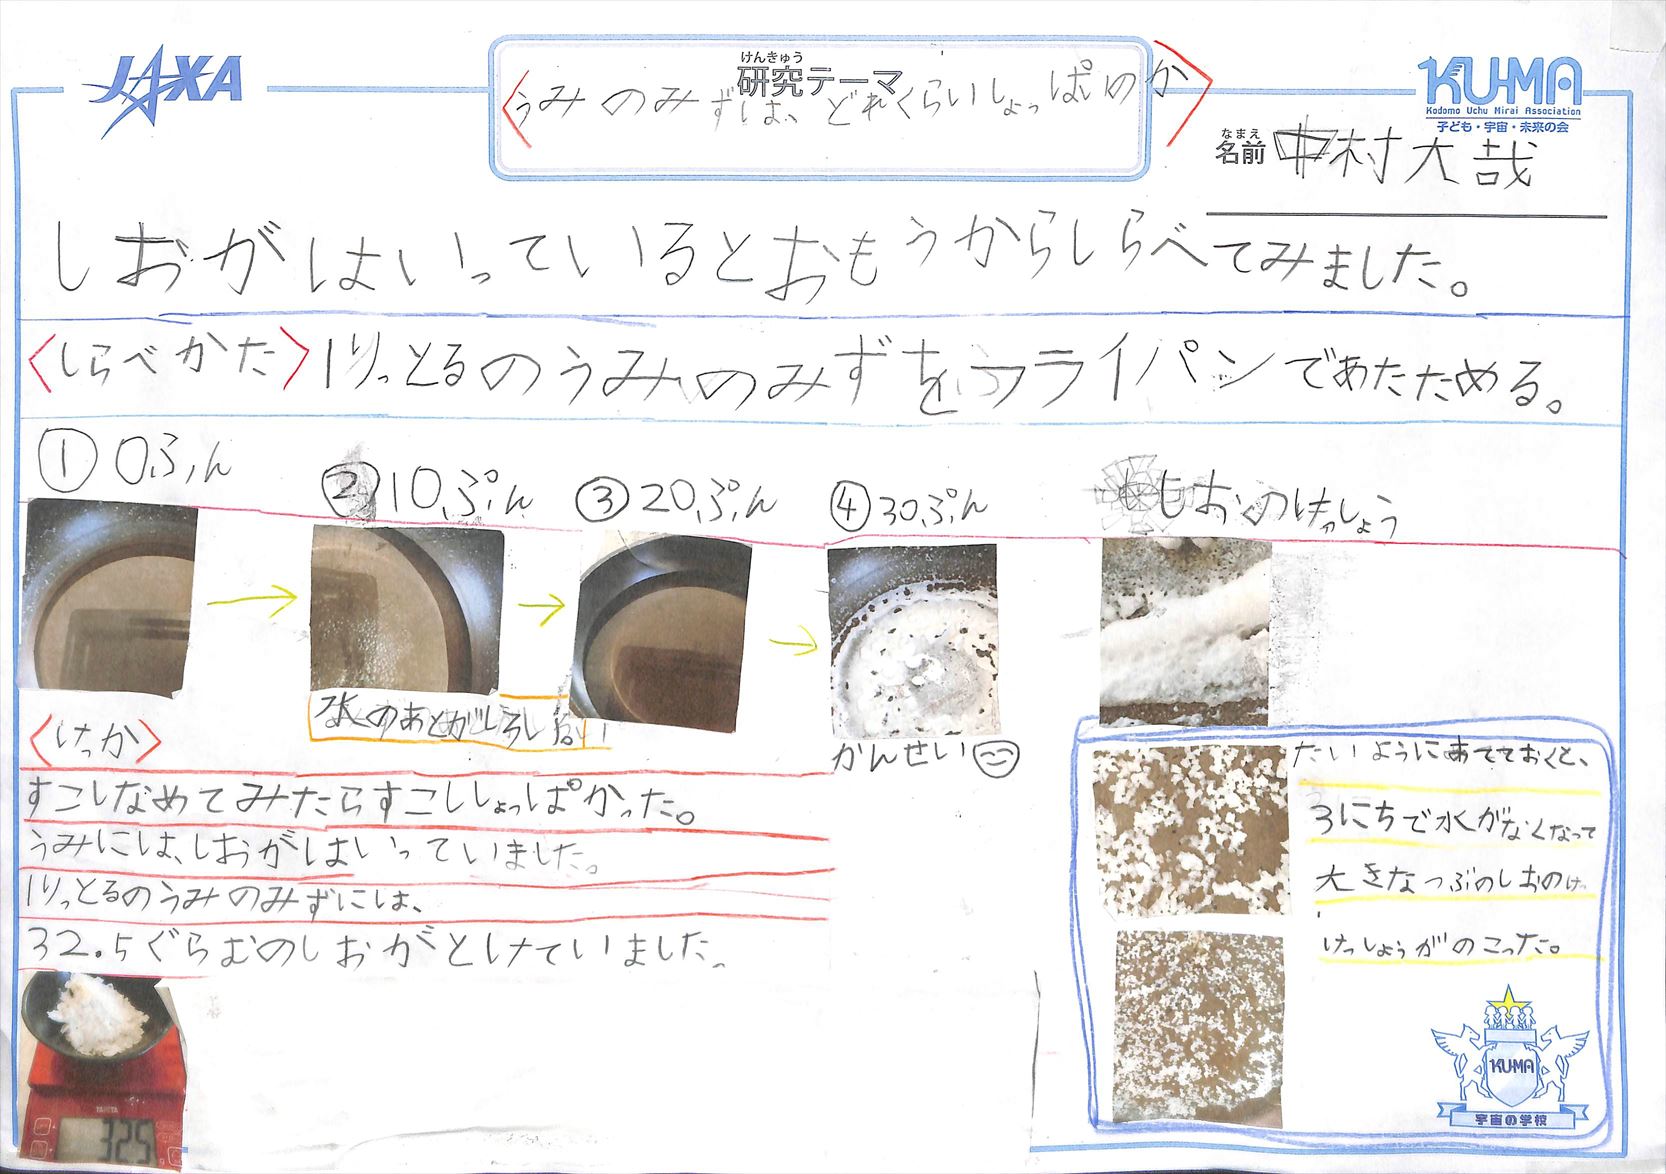 JAXA
けんきゅう
研究テーマ
うみのみずは、どれくらいしょっぱいのか
KU-MA
Kodomo Uchu Mirai Association
子ども・宇宙・未来の会
なまえ
名前 中村大哉
しおがはいっているとおもうからしらべてみました。
<しらべかた> 1りっとるのうみのみずをフライパンであたためる。
① 0ふん
② 10ぷん
③ 20ぷん
④ 30ぷん
しおのけっしょう
水のあとがしろい
かんせい
<けっか>
すこしなめてみたらすこししょっぱかった。
うみには、しおがはいっていました。
1りっとるのうみのみずには、
32.5ぐらむのしおがとけていました。
TANITA
32.5
たいようにあてておくと、
3にちで水がなくなって
大きなつぶのしおのけっ
けっしょうがのこった。
KU-MA
宇宙の学校